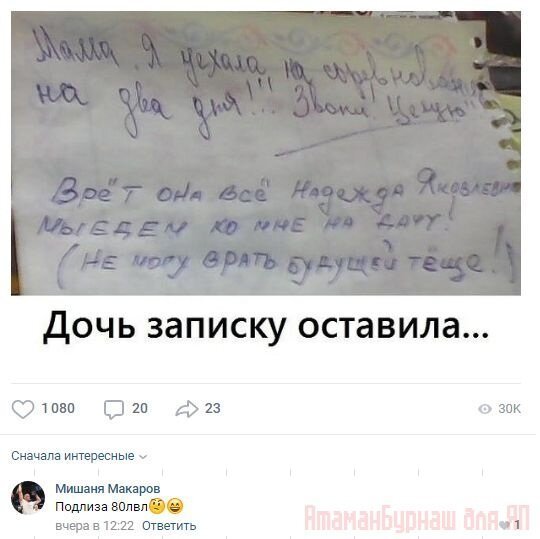 Мама, Я уехала на соревнования
на два дня!!! Звони. Целую
Врёт она всё Надежда Яковлевна
МЫ ЕДЕМ КО МНЕ НА ДАЧУ!
(НЕ МОГУ ВРАТЬ БУДУЩЕЙ ТЁЩЕ!)
Дочь записку оставила...
1 080 20 23 30K
Сначала интересные
Мишаня Макаров
Подлиза 80лвл🤔😄
вчера в 12:22 Ответить 1
АтаманБурнаш для ЯП